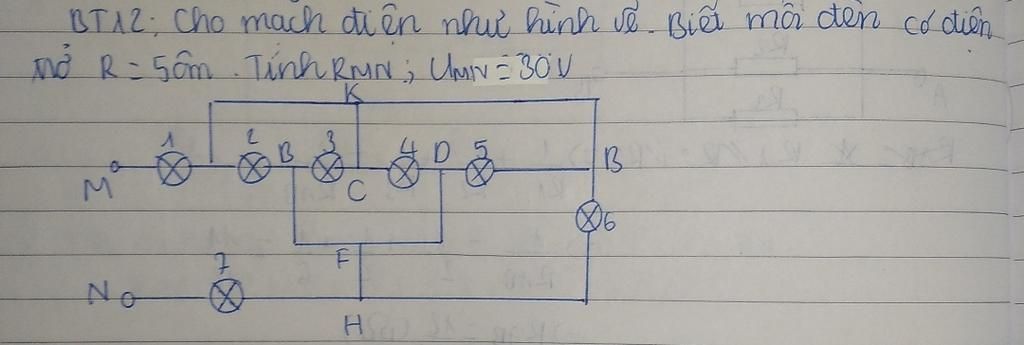 BT12: Cho mạch điện như hình vẽ. Biết mỗi đèn có điện
trở R = 5 ôm. Tính RMN; UMN = 30V
K
1 2 B 3 4 D 5 B
M C
6
F
7
N
H